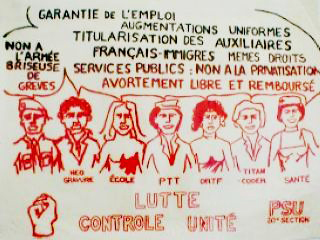 GARANTIE DE L'EMPLOI
AUGMENTATIONS UNIFORMES
TITULARISATION DES AUXILIAIRES
FRANÇAIS-IMMIGRES MEMES DROITS
NON A
L'ARMÉE
BRISEUSE
DE
GREVES
SERVICES PUBLICS : NON A LA PRIVATISATION
AVORTEMENT LIBRE ET REMBOURSÉ
NEO
GRAVURE
ÉCOLE
PTT
ORTF
TITAN
-CODER
SANTÉ
LUTTE
CONTROLE UNITÉ
PSU
20e SECTION